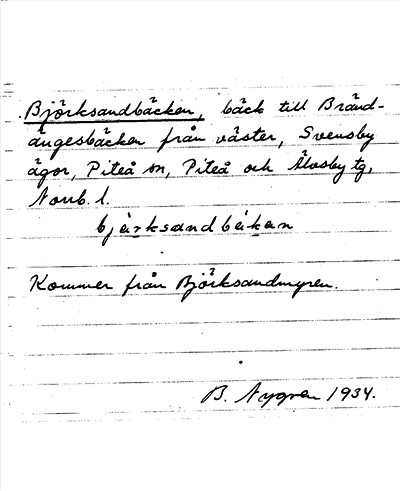 Björksandbäcken, bäck till Bränd-
ängesbäcken från väster, Svensby
ägor, Piteå sn, Piteå och Älvsby tg,
Norrb. l.
bjärksandbäkan
Kommer från Björksandmyren.
B. Nygren 1934.